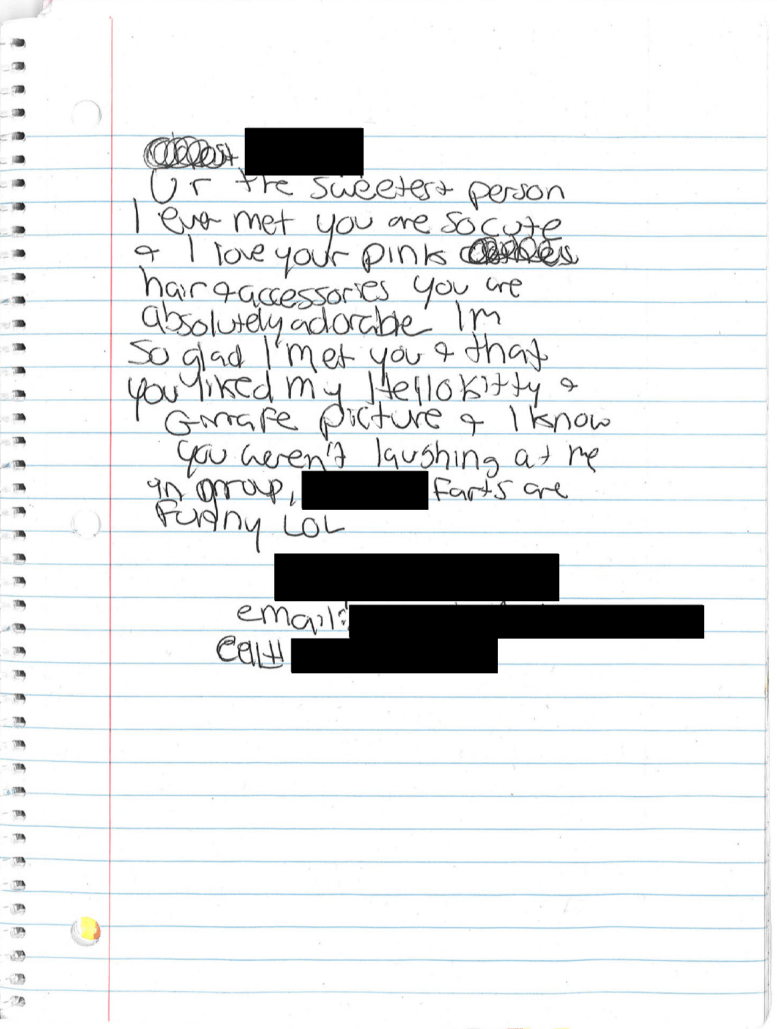 Ur the sweetest person
I ever met you are so cute
& I love your pink
hair & accessories you are
absolutely adorable Im
so glad I met you & that
you liked my Hello Kitty &
Giraffe picture & I know
you weren't laughing at me
in group, farts are
Funny LOL
email:
Cell#